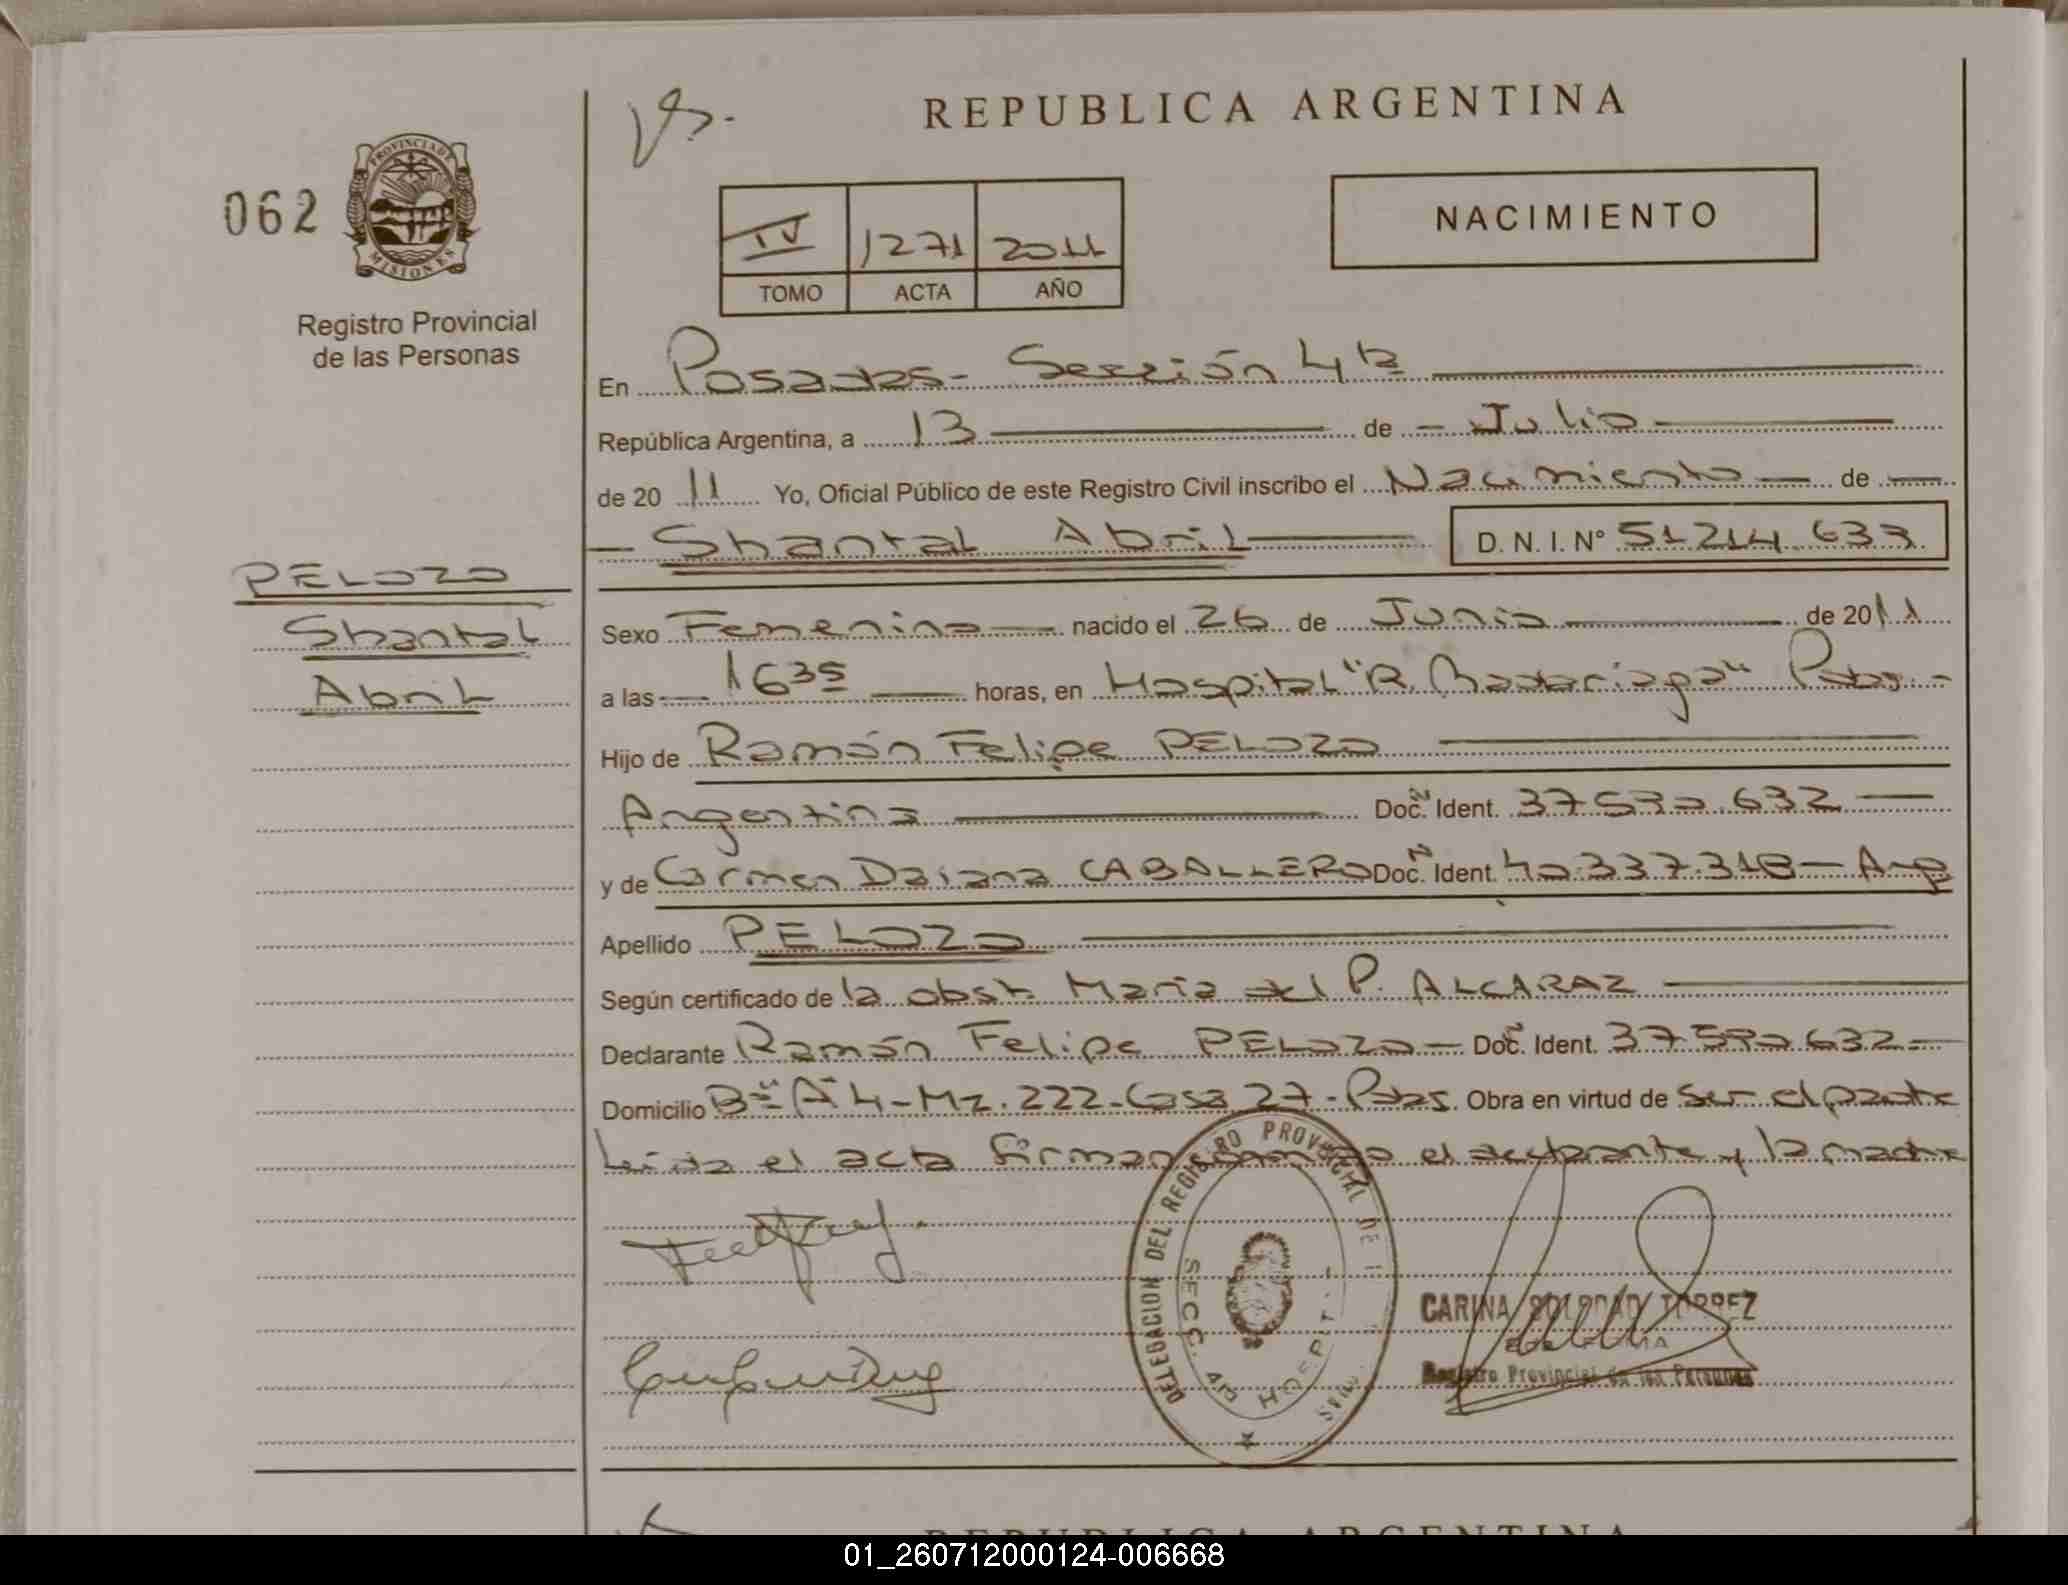 REPUBLICA ARGENTINA
062
PROVINCIA DE
MISIONES
Registro Provincial
de las Personas
IV 1271 2011
TOMO ACTA AÑO
NACIMIENTO
En Posadas - Sección 4ta
República Argentina, a 13 de Julio
de 2011 Yo, Oficial Público de este Registro Civil inscribo el Nacimiento de
Shantal Abril D. N. I. Nº 51.214.633
PELOZO
Shantal
Abril
Sexo Femenino nacido el 26 de Junio de 2011
a las 16 35 horas, en Hospital "R. Madariaga" Pdas.-
Hijo de Ramón Felipe PELOZO
Argentina Doc. Ident. 37.590.632
y de Carmen Daiana CABALLERO Doc. Ident. 40.337.318 - Arg
Apellido PELOZO
Según certificado de la obst. María del P. ALCARAZ
Declarante Ramón Felipe PELOZO - Doc. Ident. 37.590.632
Domicilio Bº A-4-Mz.222-Casa 27-Pdas. Obra en virtud de ser el padre
Leída el acta firman el declarante y la madre
DELEGACION DEL REGISTRO PROVINCIAL DE
SECC.
CARINA SOLEDAD TORREZ
Registro Provincial de las Personas
REPUBLICA ARGENTINA
01_260712000124-006668